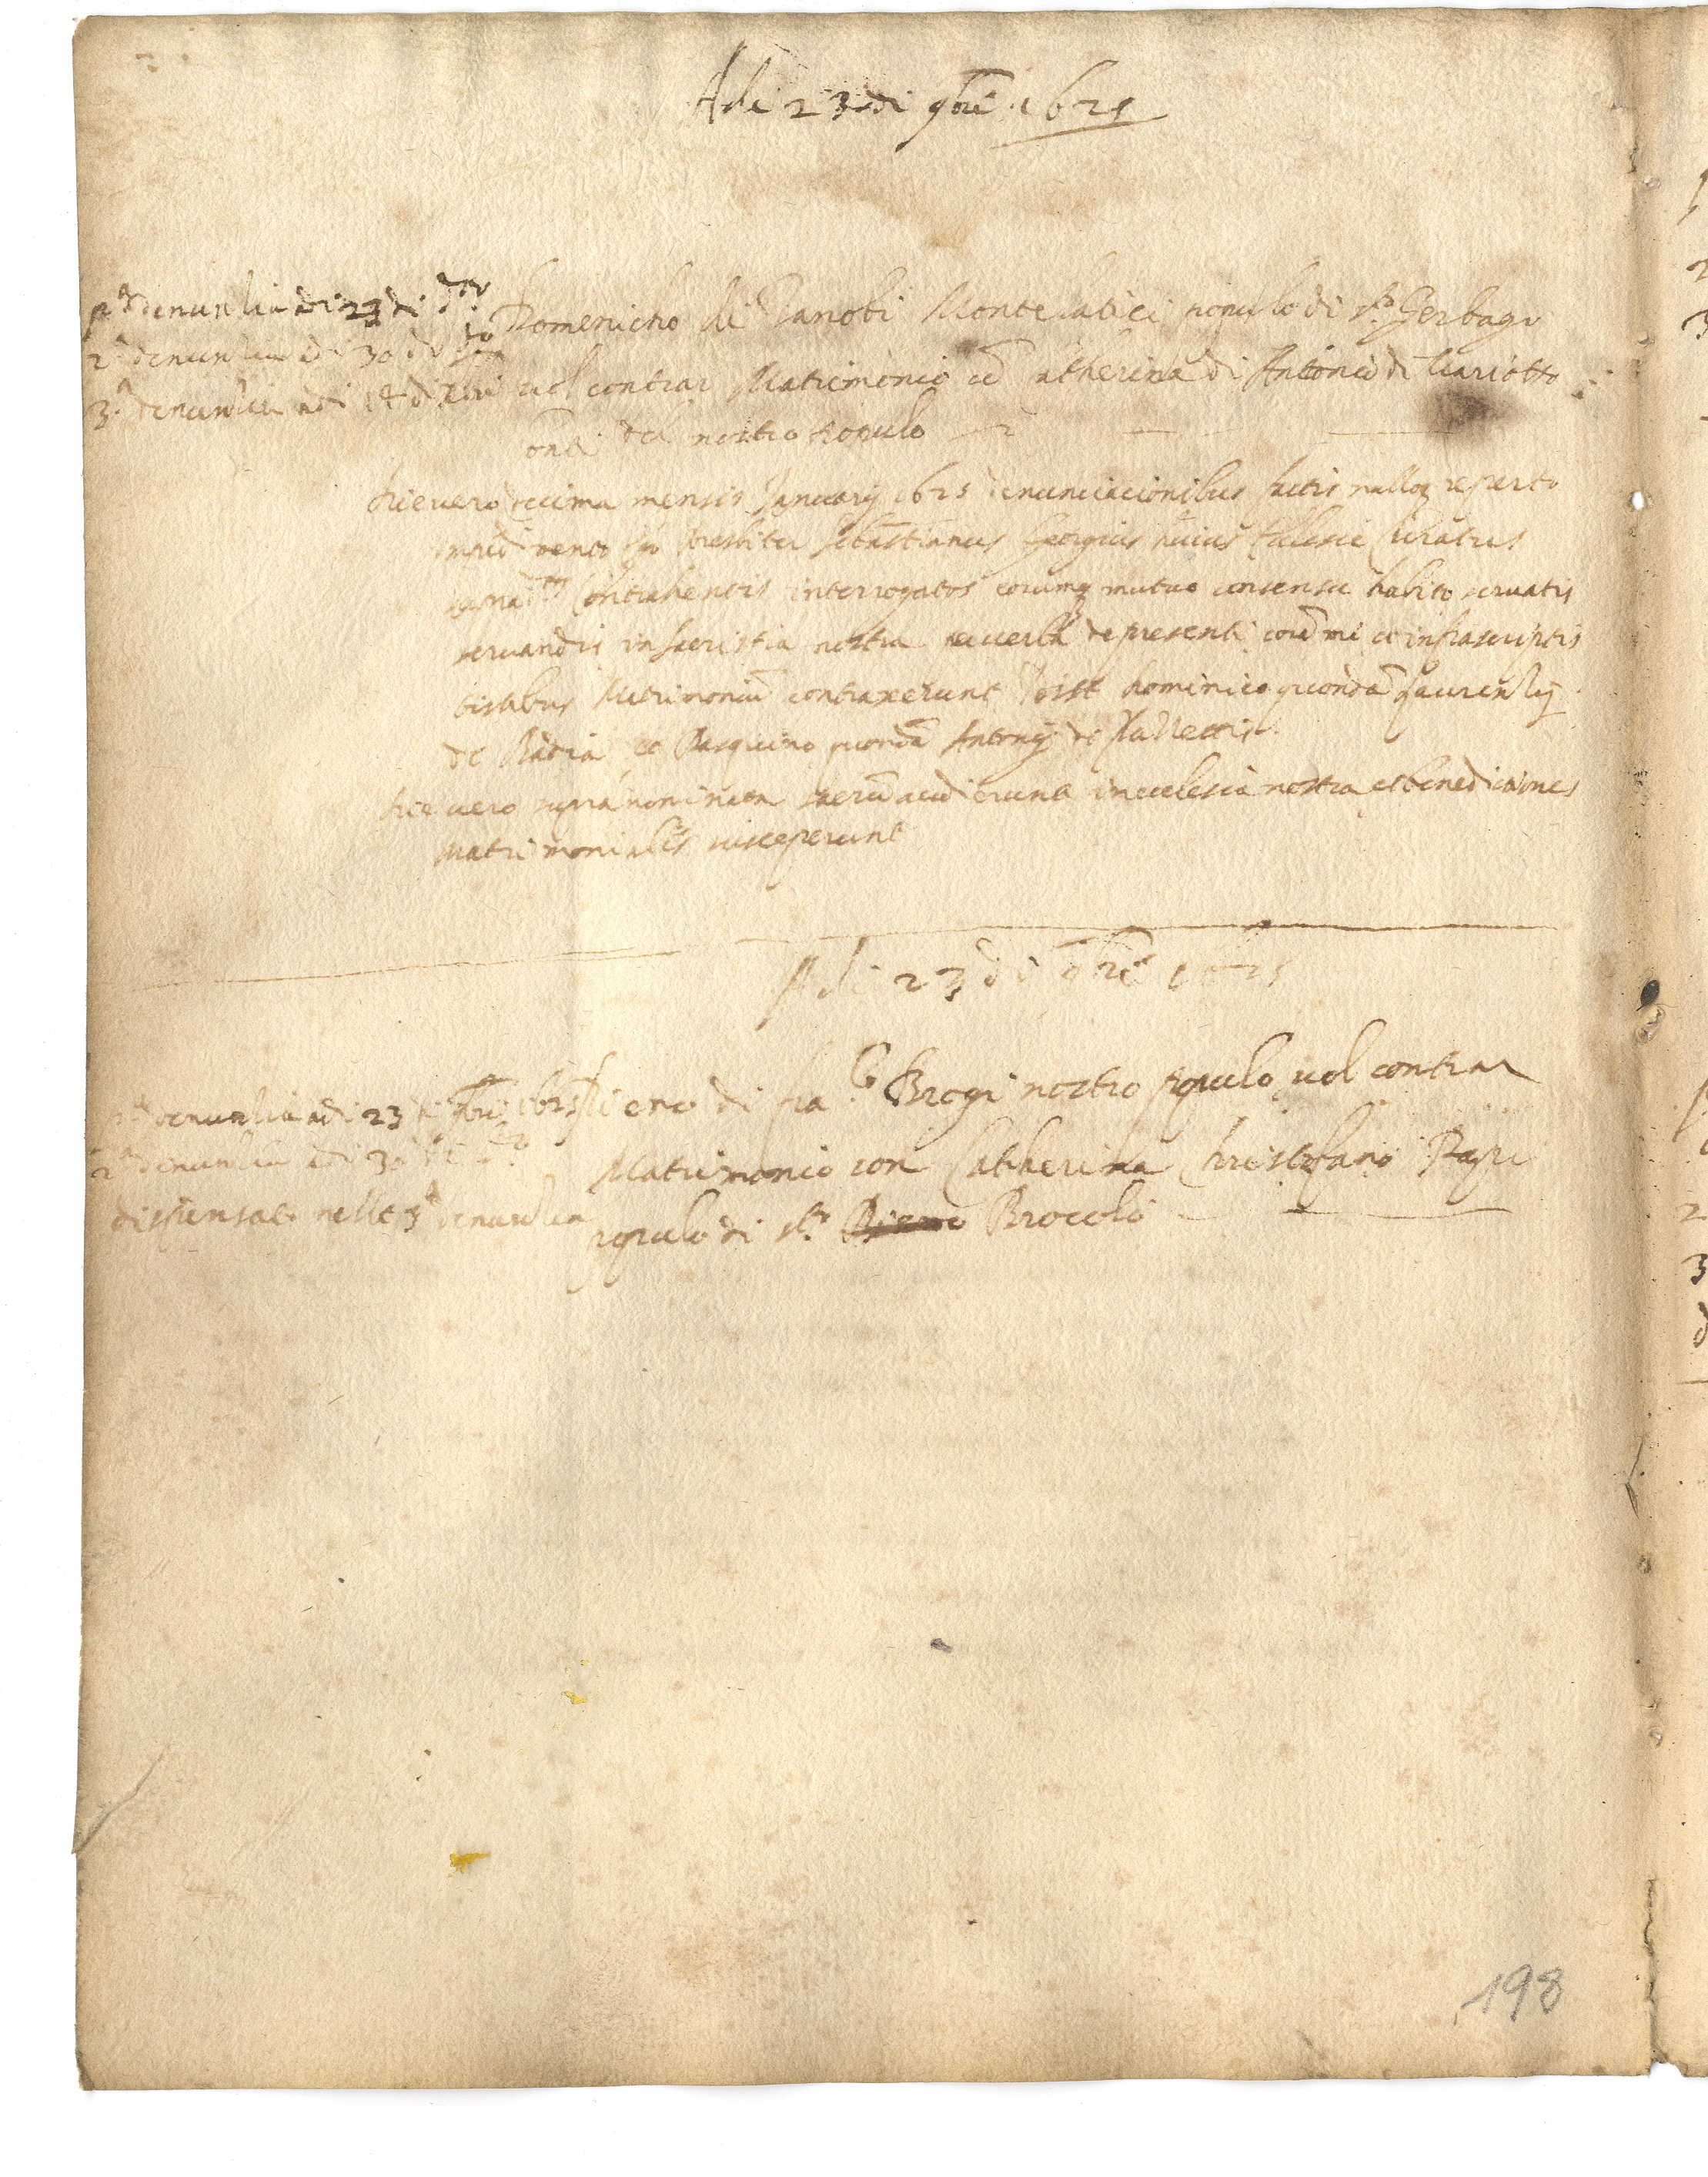 Adi 23 di 9bre 1625
pa denunzia adi 23 di do
2a denunzia adi 30 di do
3a denunzia adi 14 di Xbre
Domenicho di Zanobi Montelatici popolo di Sto Gerbagio
vol contrar Matrimonio co Catherina di Antonio di Mariotto
del nostro populo
Die vero decima mensis Januarij 1625 denunciacionibus factis nulloq reperto
impedimento Presbiter Sebastianus Georgius huius Eclesie Curatus
Contrahentis interrogatos eorumq mutuo consensu habito servatis
servandis in sacristia nostra verba de presenti cora me et infrascriptis
tistibus Matrimoniu contraxerunt Dominico quonda Laurentij
de Badia et Pasquino quonda Antonij de
Die vero supra nominata sacru audierunt in ecclesia nostra et benediciones
Matrimonialis susceperunt
Adi 23 di 9bre 1625
pa denunzia adi 23 di 9bre 1625
2a denunzia adi 30 di do
dispensato nelle 3a denunzia
Piero di fraco Brogi nostro populo vol contrar
Matrimonio con Catherina Christofano Papi
populo di Sto Piero Brocolo
198